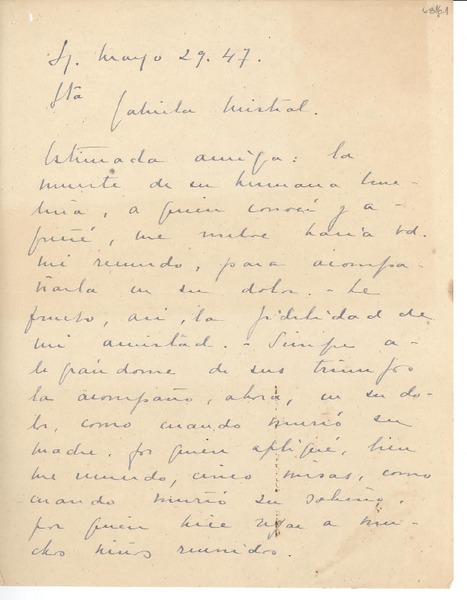 Sg. mayo 29.47.
Sta Gabriela Mistral.
Estimada amiga: la
muerte de su hermana Eme-
lina, a quien conocí y a-
precié, me vuelve hacia Ud.
mi recuerdo, para acompa-
ñarla en su dolor. - Le
pruebo, así, la fidelidad de
mi amistad. - Siempre a-
legrándome de sus triunfos
la acompaño, ahora, en su do-
lor, como cuando murió su
madre, por quien apliqué, bien
me recuerdo, cinco misas, como
cuando murió su sobrino,
por quien hice rezar a mu-
chos niños reunidos.